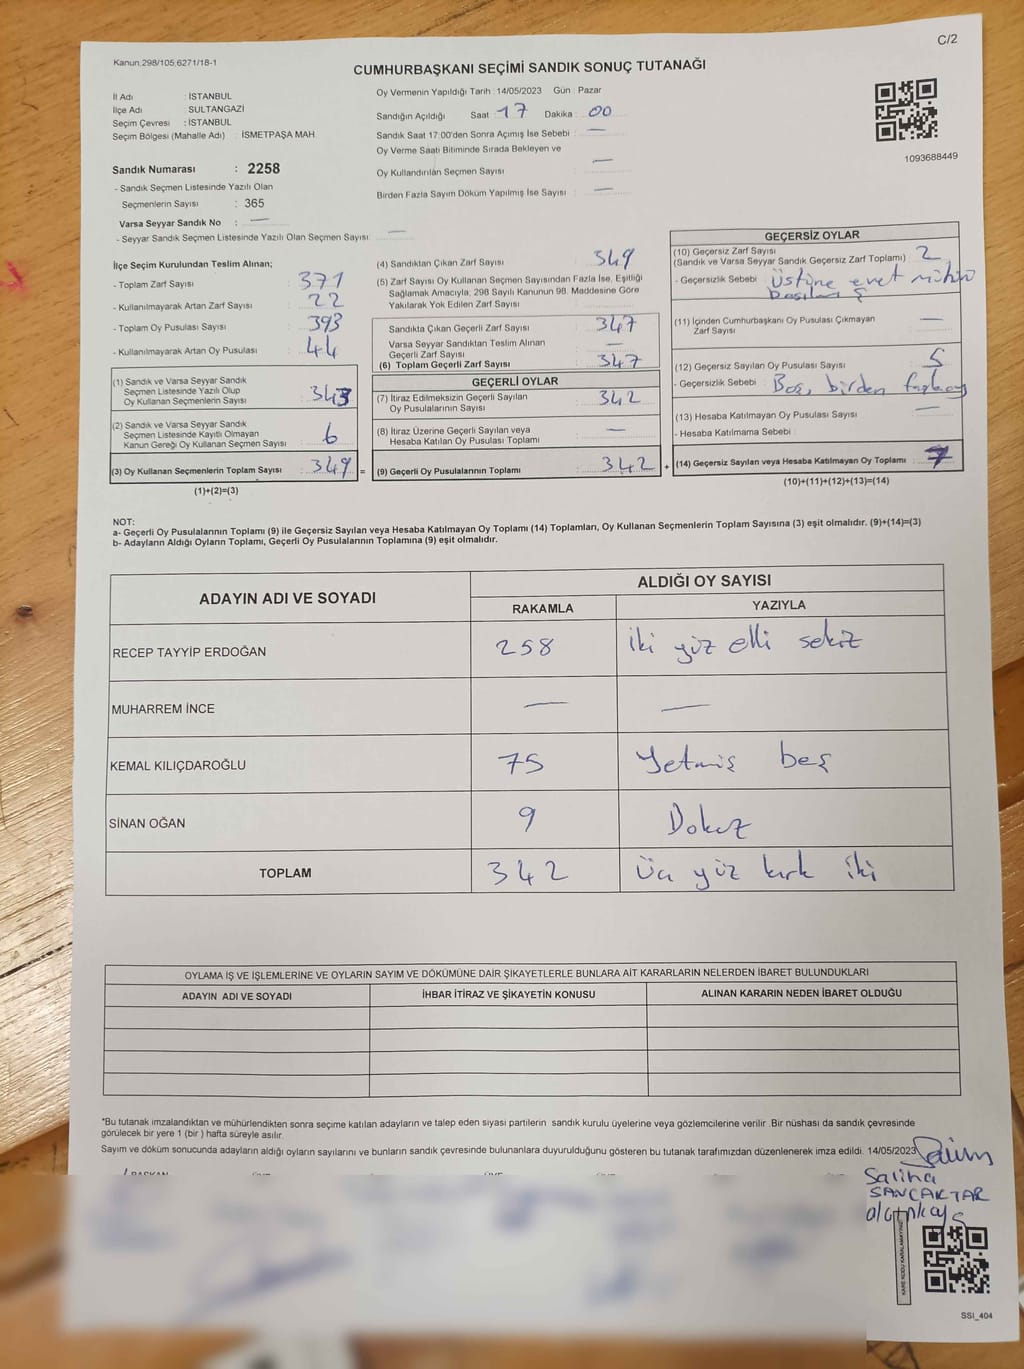 C/2
Kanun:298/105,6271/18-1
CUMHURBAŞKANI SEÇİMİ SANDIK SONUÇ TUTANAĞI
İl Adı : İSTANBUL
İlçe Adı : SULTANGAZİ
Seçim Çevresi : İSTANBUL
Seçim Bölgesi (Mahalle Adı) : İSMETPAŞA MAH.
Sandık Numarası : 2258
- Sandık Seçmen Listesinde Yazılı Olan
Seçmenlerin Sayısı : 365
Varsa Seyyar Sandık No : —
- Seyyar Sandık Seçmen Listesinde Yazılı Olan Seçmen Sayısı: —
Oy Vermenin Yapıldığı Tarih : 14/05/2023 Gün : Pazar
Sandığın Açıldığı Saat : 17 Dakika : 00
Sandık Saat 17:00'den Sonra Açımış İse Sebebi : —
Oy Verme Saati Bitiminde Sırada Bekleyen ve
Oy Kullandırılan Seçmen Sayısı : —
Birden Fazla Sayım Döküm Yapılmış İse Sayısı : —
1093688449
İlçe Seçim Kurulundan Teslim Alınan;
- Toplam Zarf Sayısı : 371
- Kullanılmayarak Artan Zarf Sayısı : 22
- Toplam Oy Pusulası Sayısı : 393
- Kullanılmayarak Artan Oy Pusulası : 44
(1) Sandık ve Varsa Seyyar Sandık
Seçmen Listesinde Yazılı Olup
Oy Kullanan Seçmenlerin Sayısı : 343
(2) Sandık ve Varsa Seyyar Sandık
Seçmen Listesinde Kayıtlı Olmayan
Kanun Gereği Oy Kullanan Seçmen Sayısı : 6
(3) Oy Kullanan Seçmenlerin Toplam Sayısı : 349 =
(1)+(2)=(3)
(4) Sandıktan Çıkan Zarf Sayısı : 349
(5) Zarf Sayısı Oy Kullanan Seçmen Sayısından Fazla İse, Eşitliği
Sağlamak Amacıyla, 298 Sayılı Kanunun 98. Maddesine Göre
Yakılarak Yok Edilen Zarf Sayısı :
Sandıkta Çıkan Geçerli Zarf Sayısı : 347
Varsa Seyyar Sandıktan Teslim Alınan
Geçerli Zarf Sayısı : —
(6) Toplam Geçerli Zarf Sayısı : 347
GEÇERLİ OYLAR
(7) İtiraz Edilmeksizin Geçerli Sayılan
Oy Pusulalarının Sayısı : 342
(8) İtiraz Üzerine Geçerli Sayılan veya
Hesaba Katılan Oy Pusulası Toplamı : —
(9) Geçerli Oy Pusulalarının Toplamı : 342 +
GEÇERSİZ OYLAR
(10) Geçersiz Zarf Sayısı
(Sandık ve Varsa Seyyar Sandık Geçersiz Zarf Toplamı) : 2
- Geçersizlik Sebebi : Üstüne evet mührü
(11) İçinden Cumhurbaşkanı Oy Pusulası Çıkmayan
Zarf Sayısı : —
(12) Geçersiz Sayılan Oy Pusulası Sayısı : 5
- Geçersizlik Sebebi : Boş, birden fazla oy
(13) Hesaba Katılmayan Oy Pusulası Sayısı : —
- Hesaba Katılmama Sebebi :
(14) Geçersiz Sayılan veya Hesaba Katılmayan Oy Toplamı : 7
(10)+(11)+(12)+(13)=(14)
NOT:
a- Geçerli Oy Pusulalarının Toplamı (9) ile Geçersiz Sayılan veya Hesaba Katılmayan Oy Toplamı (14) Toplamları, Oy Kullanan Seçmenlerin Toplam Sayısına (3) eşit olmalıdır. (9)+(14)=(3)
b- Adayların Aldığı Oyların Toplamı, Geçerli Oy Pusulalarının Toplamına (9) eşit olmalıdır.
ADAYIN ADI VE SOYADI
ALDIĞI OY SAYISI
RAKAMLA YAZIYLA
RECEP TAYYİP ERDOĞAN 258 İki yüz elli sekiz
MUHARREM İNCE — —
KEMAL KILIÇDAROĞLU 75 Yetmiş beş
SİNAN OĞAN 9 Dokuz
TOPLAM 342 Üç yüz kırk iki
OYLAMA İŞ VE İŞLEMLERİNE VE OYLARIN SAYIM VE DÖKÜMÜNE DAİR ŞİKAYETLERLE BUNLARA AİT KARARLARIN NELERDEN İBARET BULUNDUKLARI
ADAYIN ADI VE SOYADI İHBAR İTİRAZ VE ŞİKAYETİN KONUSU ALINAN KARARIN NEDEN İBARET OLDUĞU
*Bu tutanak imzalandıktan ve mühürlendikten sonra seçime katılan adayların ve talep eden siyasi partilerin sandık kurulu üyelerine veya gözlemcilerine verilir. Bir nüshası da sandık çevresinde
görülecek bir yere 1 (bir ) hafta süreyle asılır.
Sayım ve döküm sonucunda adayların aldığı oyların sayılarını ve bunların sandık çevresinde bulunanlara duyurulduğunu gösteren bu tutanak tarafımızdan düzenlenerek imza edildi. 14/05/2023
Saliha
SANCAKTAR
SSI_404